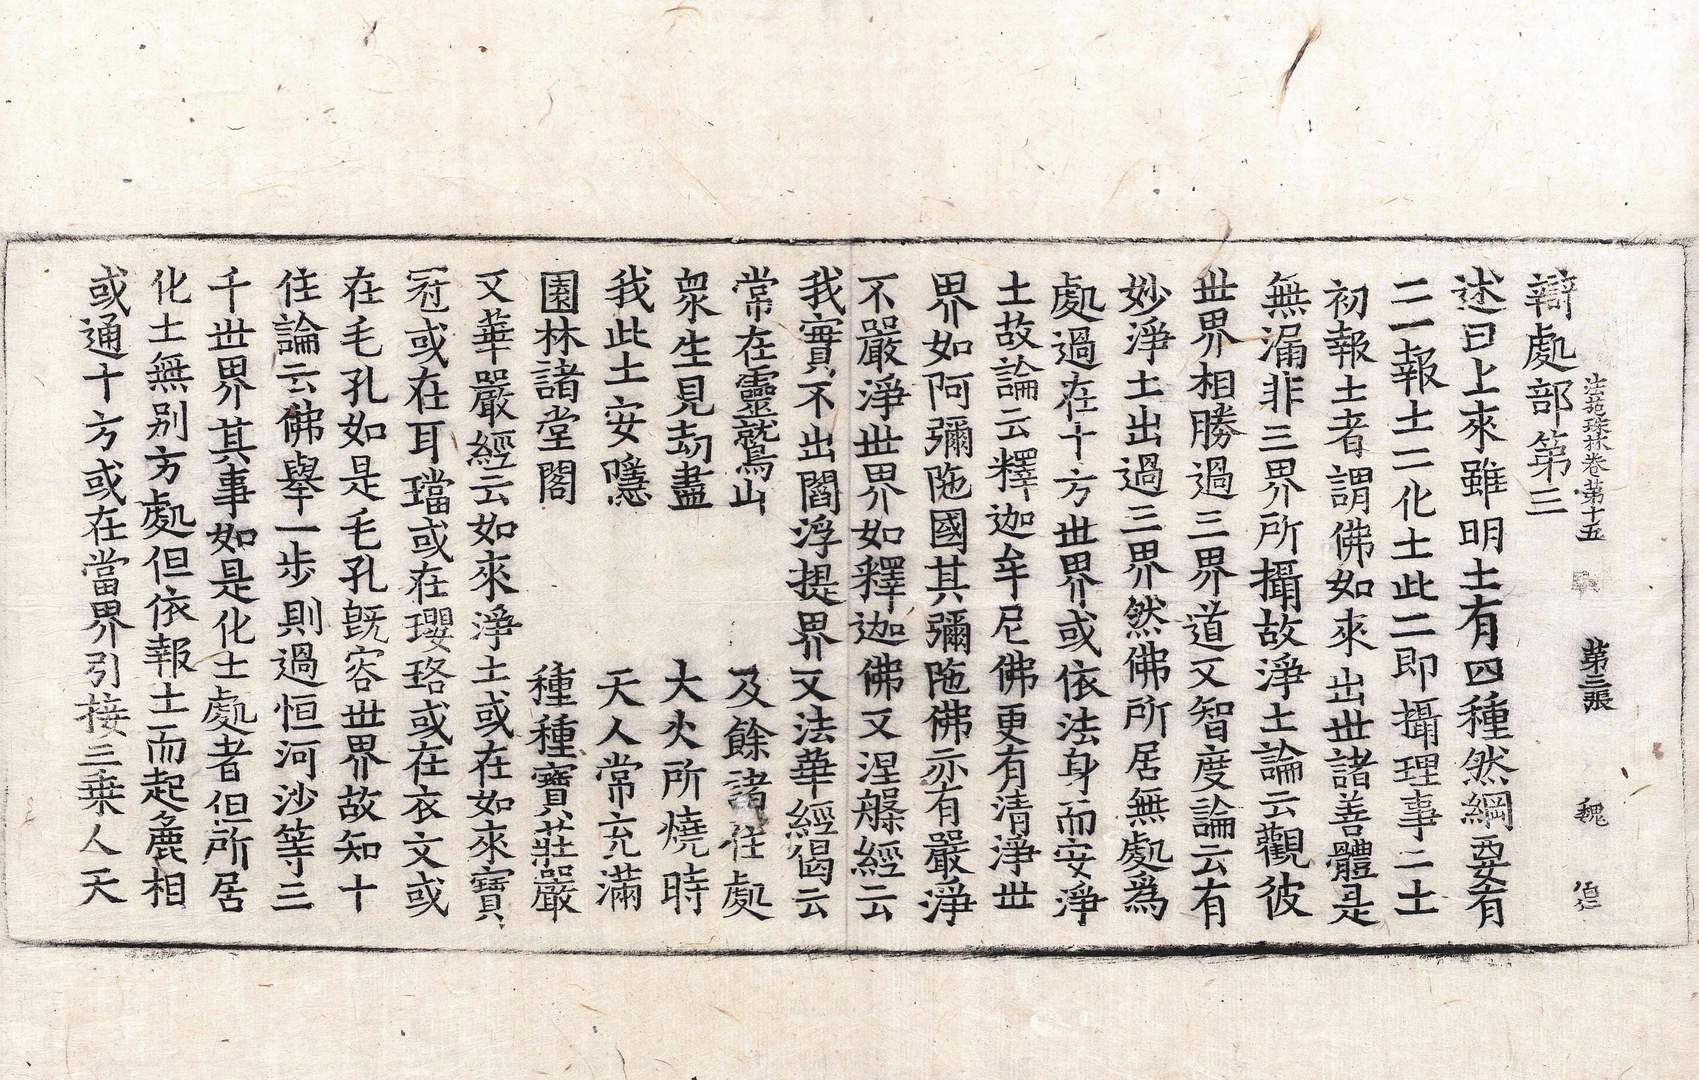 法苑珠林卷第十五 第三張 魏
辯處部第三
述曰上來雖明土有四種然綱要有
二一報土二化土此二即攝理事二土
初報土者謂佛如來出世諸善體是
無漏非三界所攝故淨土論云觀彼
世界相勝過三界道又智度論云有
妙淨土出過三界然佛所居無處爲
處過在十方世界或依法身而安淨
土故論云釋迦牟尼佛更有清淨世
界如阿彌陁國其彌陁佛亦有嚴淨
不嚴淨世界如釋迦佛又涅槃經云
我實不出閻浮提界又法華經偈云
常在靈鷲山 及餘諸住處
衆生見劫盡 大火所燒時
我此土安隱 天人常充滿
園林諸堂閣 種種寶莊嚴
又華嚴經云如來淨土或在如來寶
冠或在耳璫或在瓔珞或在衣文或
在毛孔如是毛孔旣容世界故知十
住論云佛舉一步則過恒河沙等三
千世界其事如是化土處者但所居
化土無別方處但依報土而起麁相
或通十方或在當界引接三乗人天